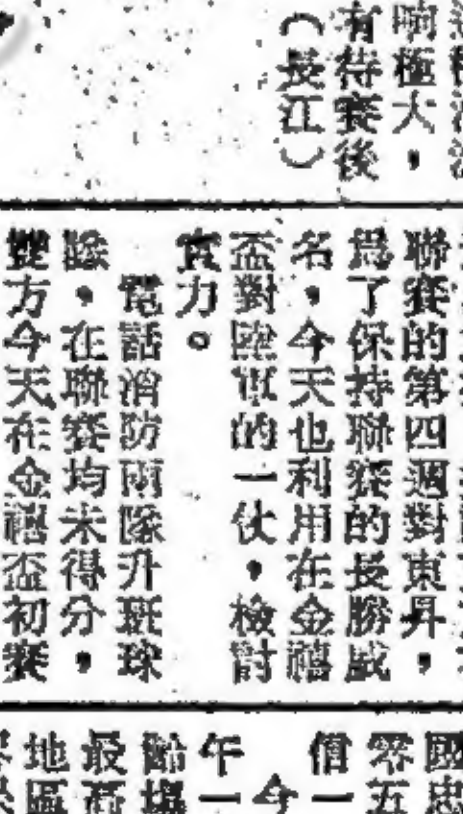 响極大，
有待賽後
（長江）
聯賽的第四週對東昇，
爲了保持聯賽的長勝威
名，今天也利用在金禧
盃對陸軍的一伙，檢討
實力。
電話消防兩隊升班球
隊，在聯賽均未得分，
雙方今天在金禧盃初賽
國忠
零五
信一
今
午一
齡場
最高
地區